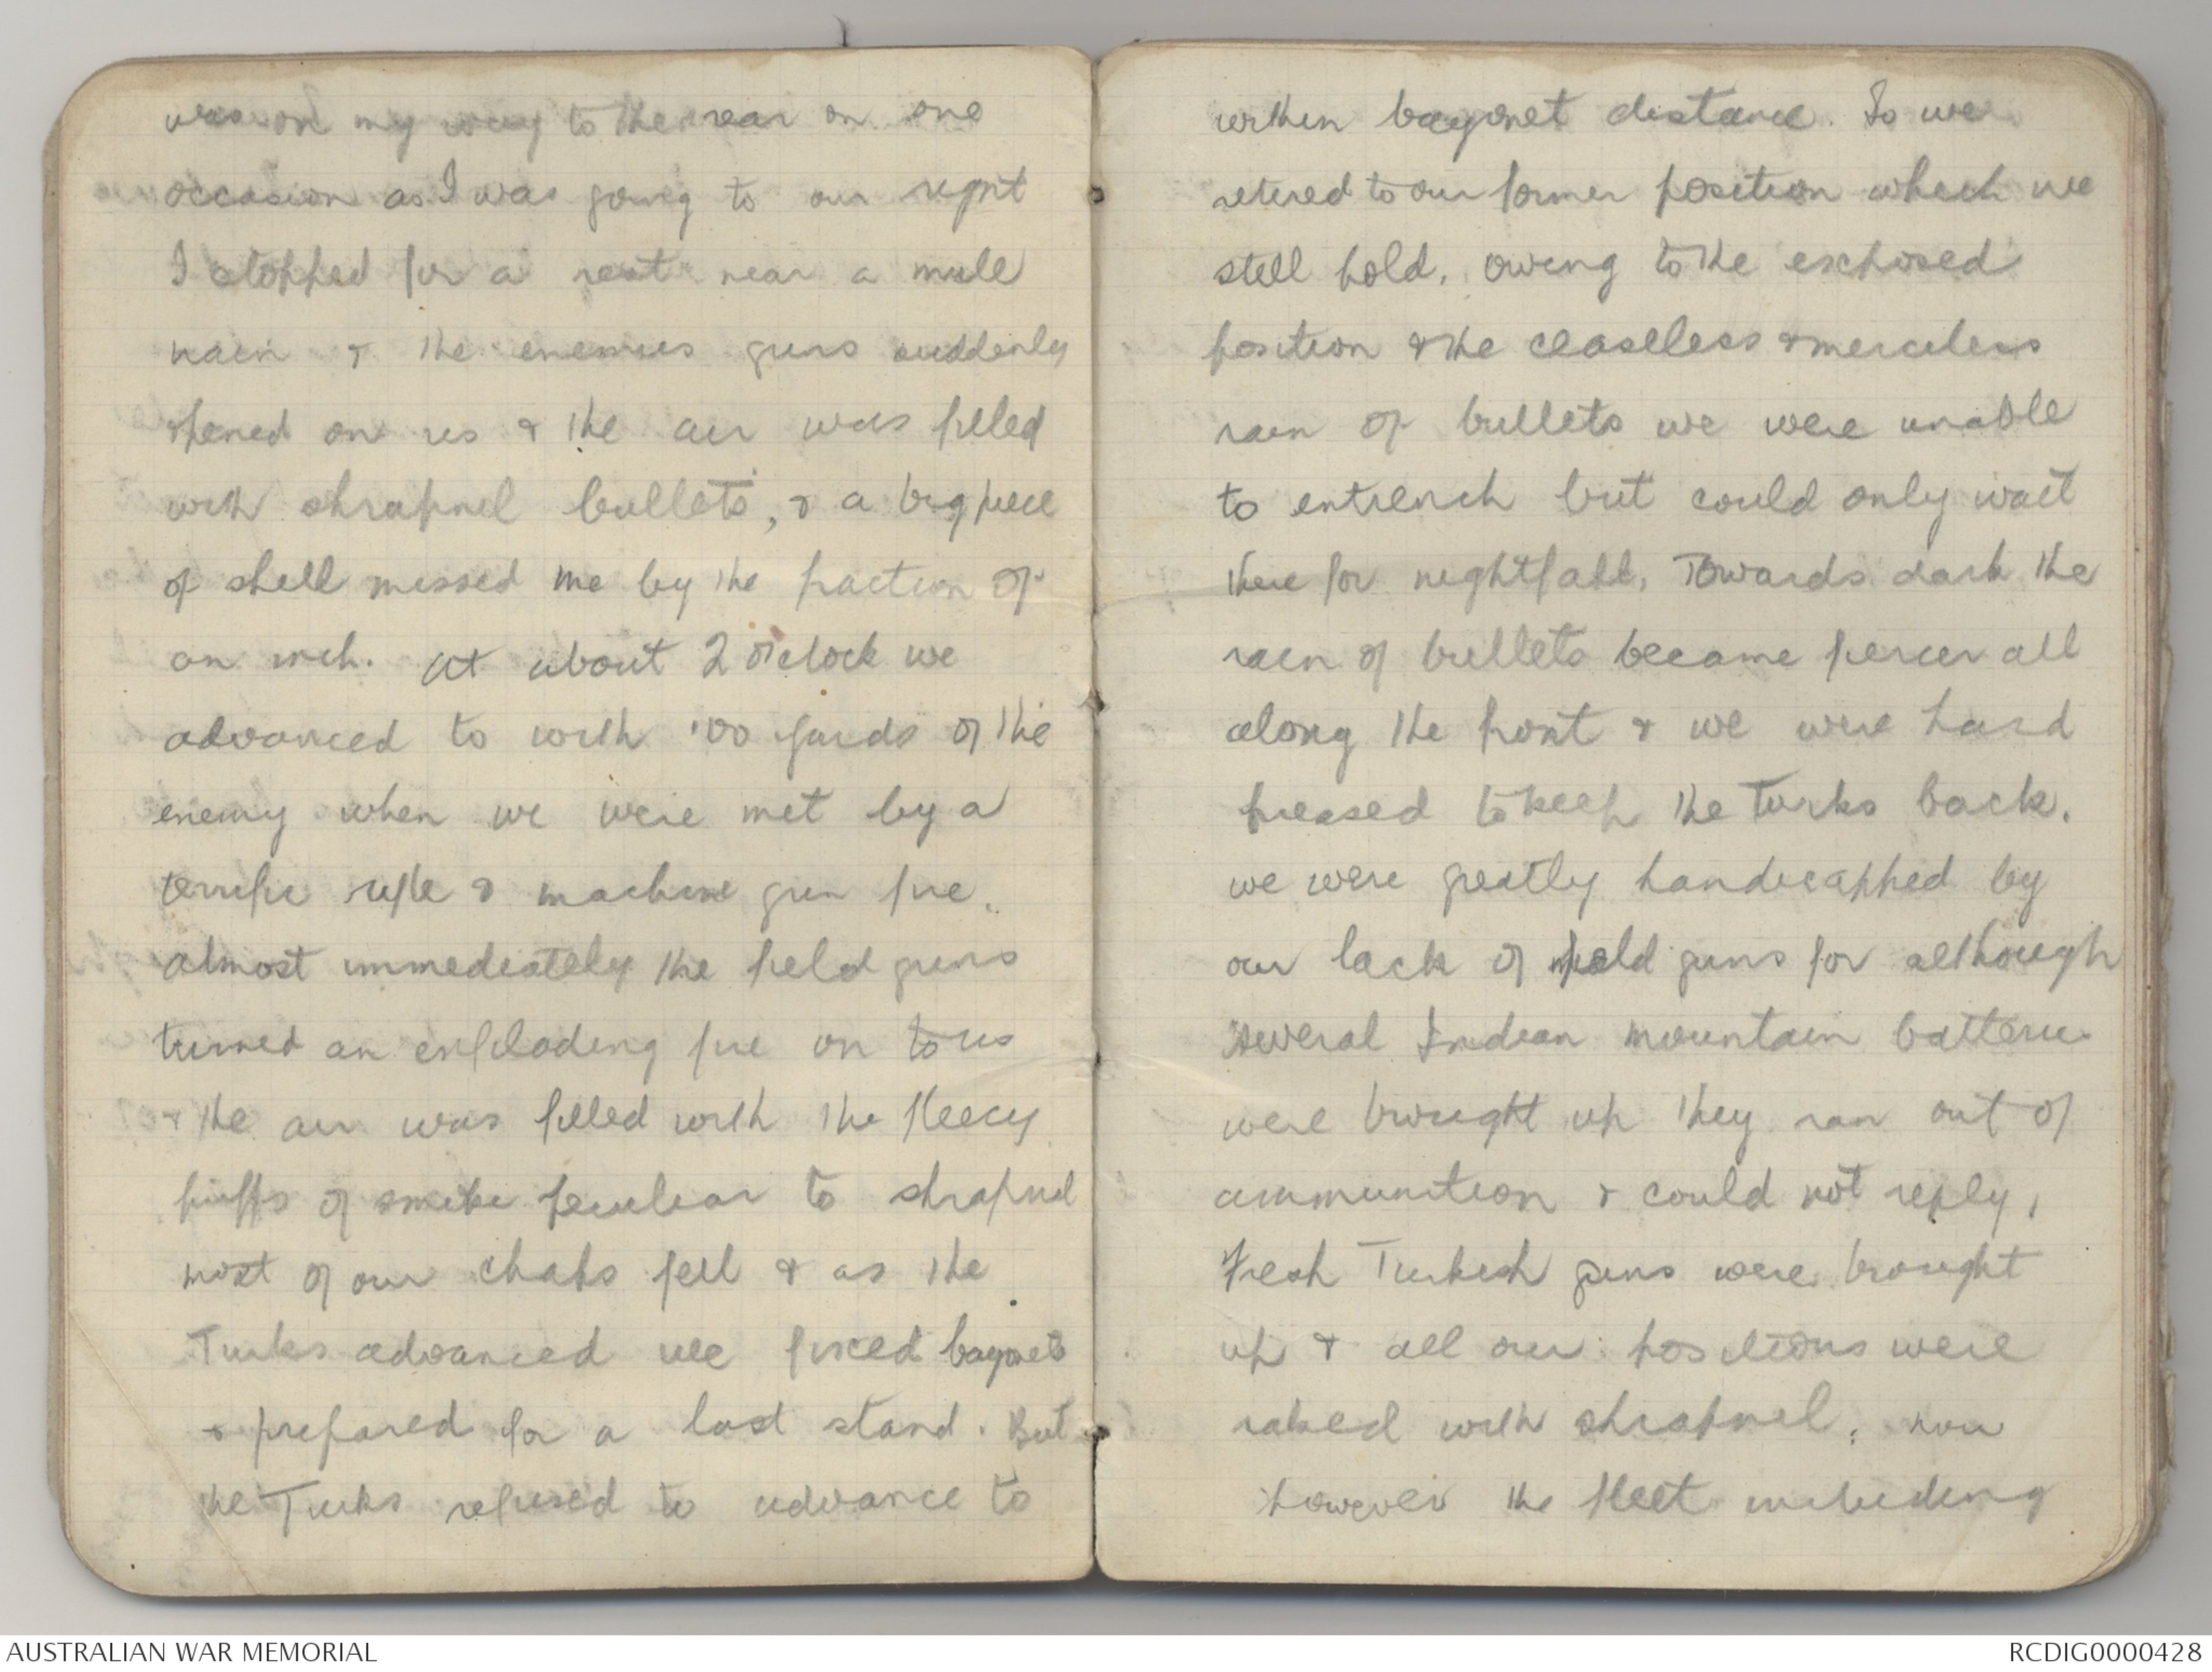 was on my way to the rear on one
occasion as I was going to our right
I stopped for a rest near a mule
train & the enemies guns suddenly
opened on us & the air was filled
with shrapnel bullets, & a big piece
of shell missed me by the fraction of
an inch. At about 2 o'clock we
advanced to with 100 yards of the
enemy when we were met by a
terrific rifle & machine gun fire.
almost immediately the field guns
turned an enfilading fire on to us
& the air was filled with the fleecy
puffs of smoke peculiar to shrapnel
most of our chaps fell & as the
Turks advanced we fixed bayonets
& prepared for a last stand. But
the Turks refused to advance to
within bayonet distance. So we
retired to our former position which we
still hold. owing to the exposed
position & the ceaseless & merciless
rain of bullets we were unable
to entrench but could only wait
there for nightfall. Towards dark the
rain of bullets became fiercer all
along the front & we were hard
pressed to keep the Turks back.
we were greatly handicapped by
our lack of field guns for although
several Indian mountain batteries
were brought up they ran out of
ammunition & could not reply,
Fresh Turkish guns were brought
up & all our positions were
raked with shrapnel. now
however the fleet including
AUSTRALIAN WAR MEMORIAL
RCDIG0000428